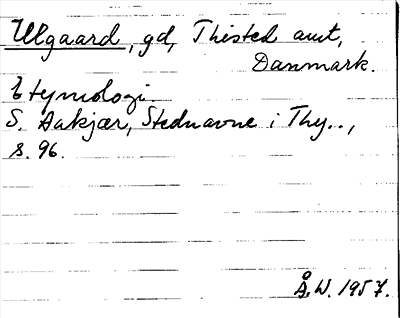 Ulgaard, gd, Thisted amt,
Danmark.
Etymologi.
S. Aakjær, Stednavne i Thy..,
s. 96.
Å.W. 1957.